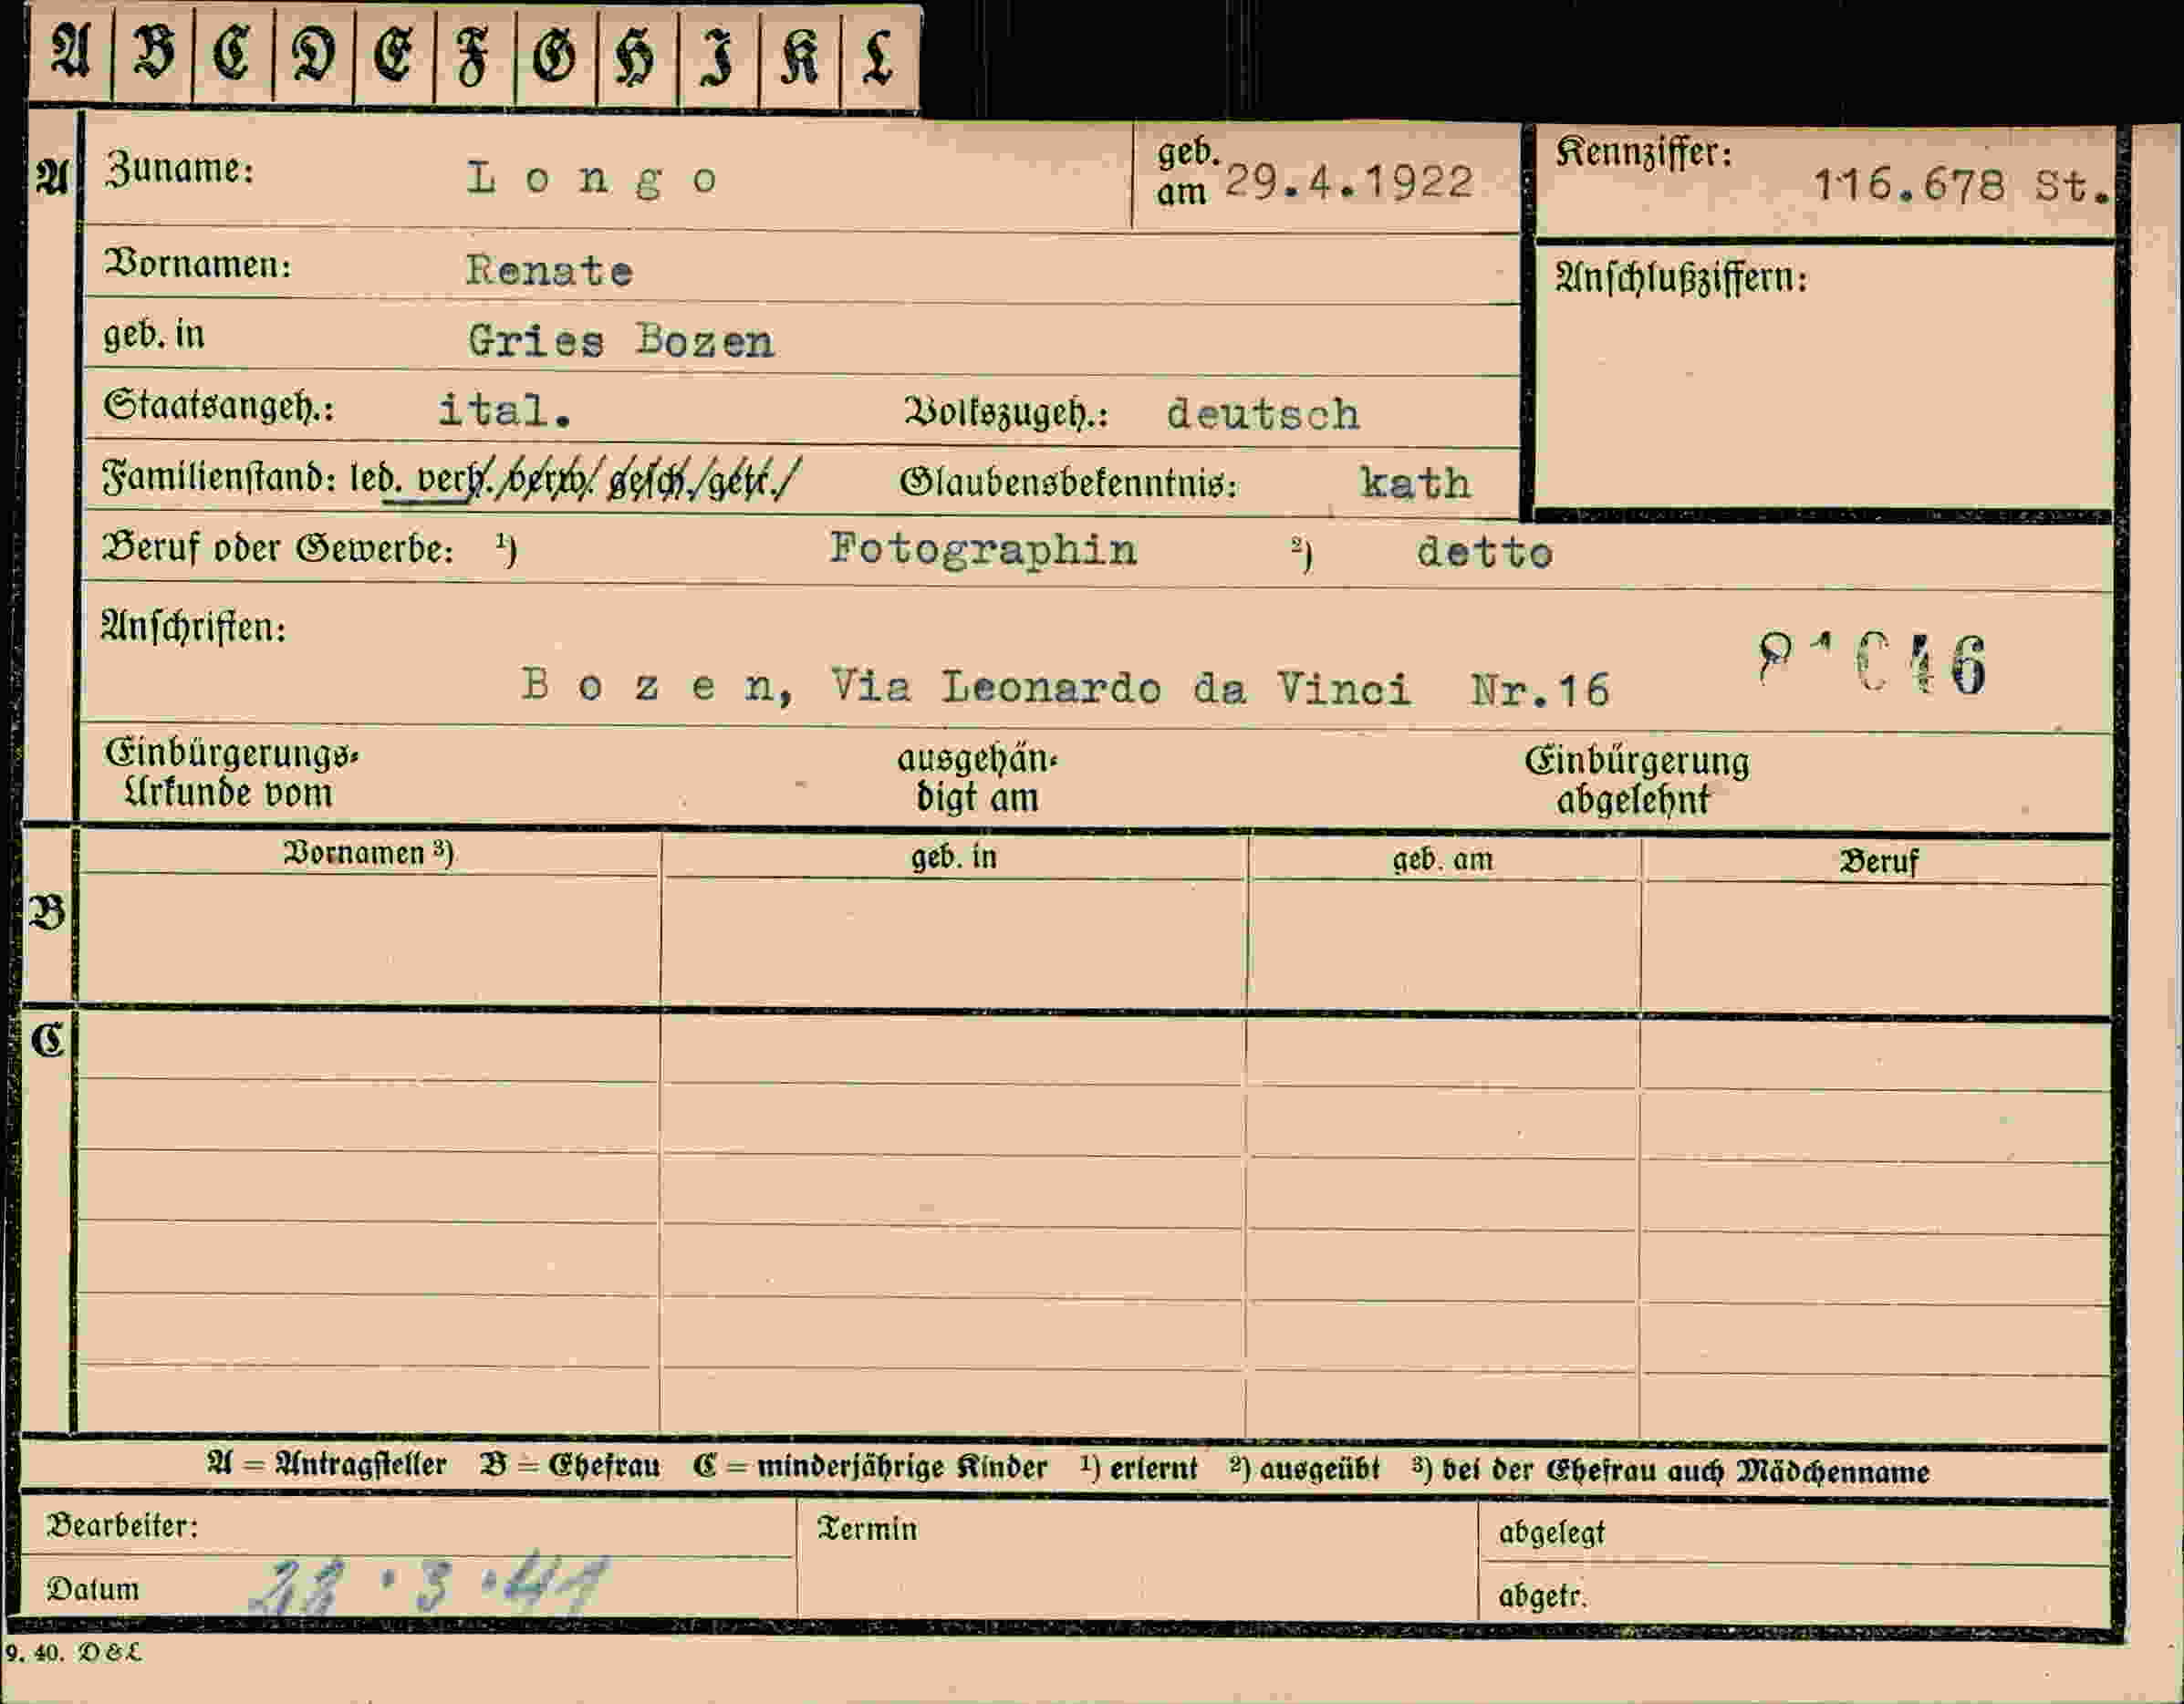 A B C D E F G H I K L
A Zuname: Longo geb. am 29.4.1922 Kennziffer: 116.678 St.
Vornamen: Renate Anschlußziffern:
geb. in Gries Bozen
Staatsangeh.: ital. Volkszugeh.: deutsch
Familienstand: led. verh. verw. gesch. getr. Glaubensbekenntnis: kath
Beruf oder Gewerbe: ¹) Fotographin ²) detto
Anschriften:
Bozen, Via Leonardo da Vinci Nr.16
Einbürgerungs- ausgehän- Einbürgerung
Urkunde vom digt am abgelehnt
Vornamen ³) geb. in geb. am Beruf
B
C
A = Antragsteller B = Ehefrau C = minderjährige Kinder ¹) erlernt ²) ausgeübt ³) bei der Ehefrau auch Mädchenname
Bearbeiter: Termin abgelegt
Datum abgetr.
9. 40. D & L